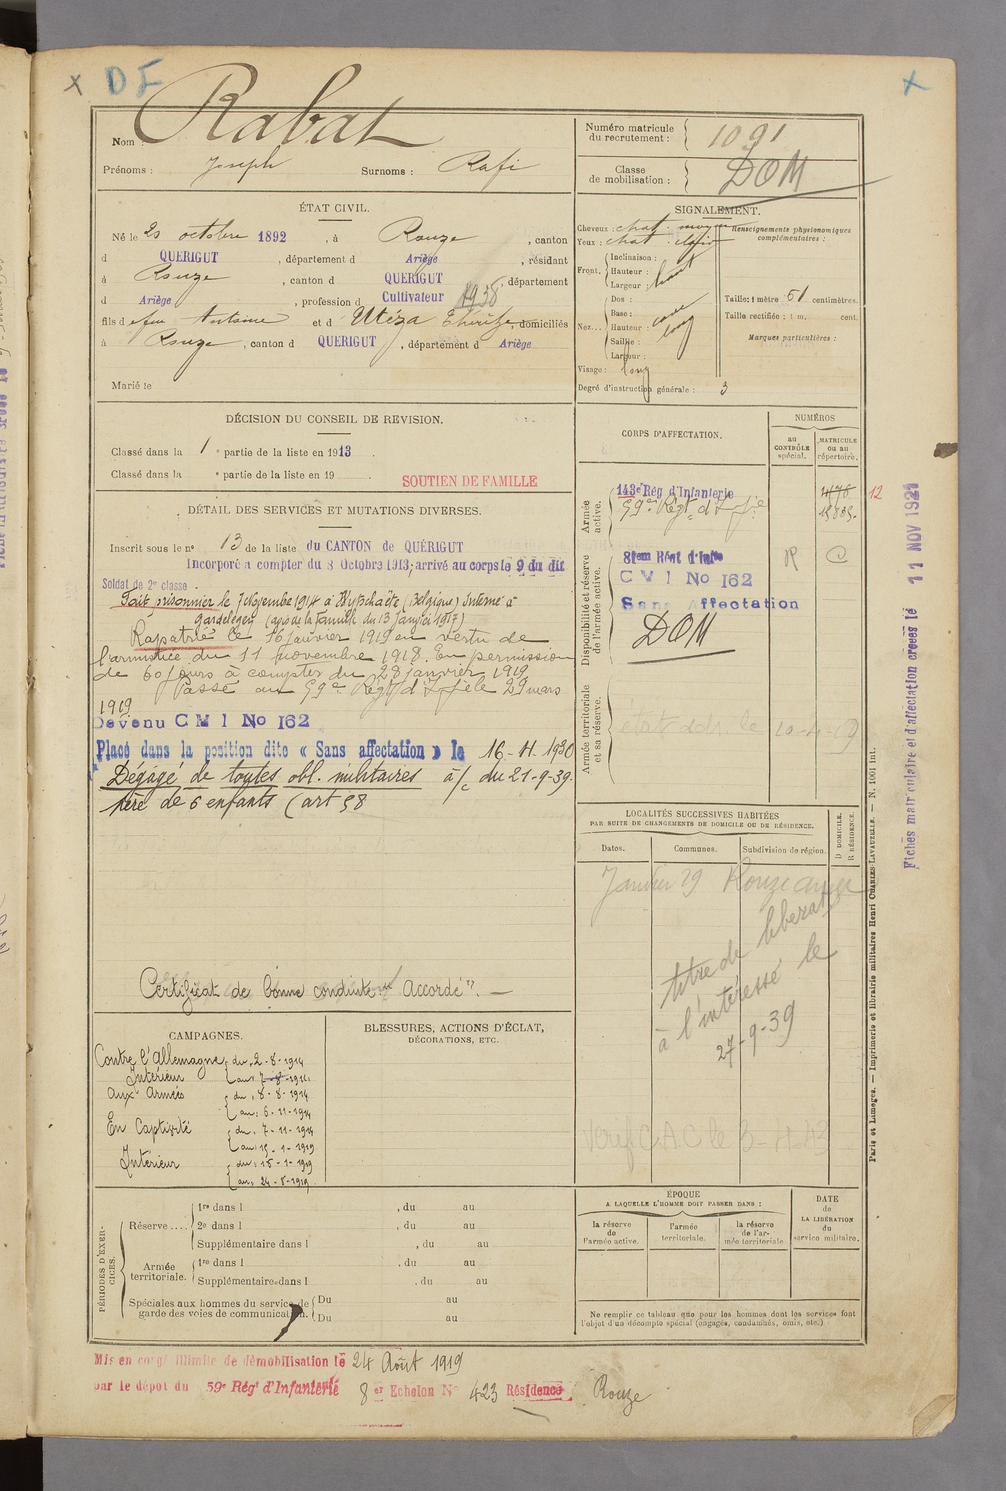 DF
Nom : Rabat
Prénoms : Joseph Surnoms : Rafi
Numéro matricule du recrutement : 1091
Classe de mobilisation : DOM
ÉTAT CIVIL.
Né le 20 octobre 1892, à Rouze, canton
d QUERIGUT, département d Ariège, résidant
à Rouze, canton d QUERIGUT, département
d Ariège, profession d Cultivateur 1938
fils d efeu Antoine et d' Utéza domiciliés
à Rouze, canton d QUERIGUT, département d Ariège
Marié le
SIGNALEMENT.
Cheveux : chat. moyen
Yeux : chat.
Renseignements physionomiques complémentaires :
Front. Inclinaison :
Hauteur : haut
Largeur :
Nez... Dos :
Base :
Hauteur :
Saillie : long
Largeur :
Visage : long
Taille : 1 mètre 61 centimètres.
Taille rectifiée : 1 m. cent.
Marques particulières :
Degré d'instruction générale : 3
DÉCISION DU CONSEIL DE REVISION.
Classé dans la 1 e partie de la liste en 1913
Classé dans la e partie de la liste en 19
SOUTIEN DE FAMILLE
DÉTAIL DES SERVICES ET MUTATIONS DIVERSES.
Inscrit sous le no 13 de la liste du CANTON de QUÉRIGUT
Incorporé à compter du 8 Octobre 1913, arrivé au corps le 9 du dit
Soldat de 2e classe.
Fait prisonnier le 7 Novembre 1914 à Wytschaëte (Belgique) Interné à
Gardelegen (avis de la famille du 13 Janvier 1917)
Rapatrié le 16 Janvier 1919 en vertu de
l'armistice du 11 novembre 1918. En permission
de 60 jours à compter du 23 janvier 1919
Passé au 59e Régt d'Infie le 29 mars
1919
Devenu C M I No 162
Placé dans la position dite « Sans affectation » le 16-11 1930
Dégagé de toutes obl. militaires à/c du 21-9-39.
père de 6 enfants (art 58
Certificat de bonne conduite "Accordé". —
CORPS D'AFFECTATION.
NUMÉROS
au CONTRÔLE spécial.
MATRICULE ou au répertoire.
Armée active.
143e Rég d'Infanterie
59e Régt d'Infie
12
Disponibilité et réserve de l'armée active.
81em Rémt d'Infie
R
C M I No 162
Sans Affectation
DOM
Armée territoriale et sa réserve.
LOCALITÉS SUCCESSIVES HABITÉES
PAR SUITE DE CHANGEMENTS DE DOMICILE OU DE RÉSIDENCE.
D DOMICILE. R RÉSIDENCE.
Dates. Communes. Subdivision de région.
Janvier 29 Rouze
titre de libération
à l'intéressé le
27-9-39
CAMPAGNES.
Contre l'Allemagne
Intérieur du 2-8-1914
au 7-8-1914
Aux Armées du 8-8-1914
au 6-11-1914
En Captivité du 7-11-1914
au 15-1-1919
Intérieur du 15-1-1919
au 24-8-1919
BLESSURES, ACTIONS D'ÉCLAT,
DÉCORATIONS, ETC.
PÉRIODES D'EXERCICES.
Réserve....
1re dans l , du au
2e dans l , du au
Supplémentaire dans l , du au
Armée territoriale.
1re dans l , du au
Supplémentaire dans l , du au
Spéciales aux hommes du service de garde des voies de communication.
Du au
Du au
ÉPOQUE
A LAQUELLE L'HOMME DOIT PASSER DANS :
la réserve de l'armée active.
l'armée territoriale.
la réserve de l'armée territoriale
DATE de LA LIBÉRATION du service militaire.
Ne remplir ce tableau que pour les hommes dont les services font
l'objet d'un décompte spécial (engagés, condamnés, omis, etc.).
Mis en congé illimité de démobilisation le 24 Août 1919
par le dépôt du 59e Rég' d'Infanterie 8er Echelon No 423 Résidence : Rouze
Fiches matriculaire et d'affectation créées le 11 NOV 1921
Paris et Limoges. — Imprimerie et librairie militaires Henri CHARLES-LAVAUZELLE. — N. 1001 int.